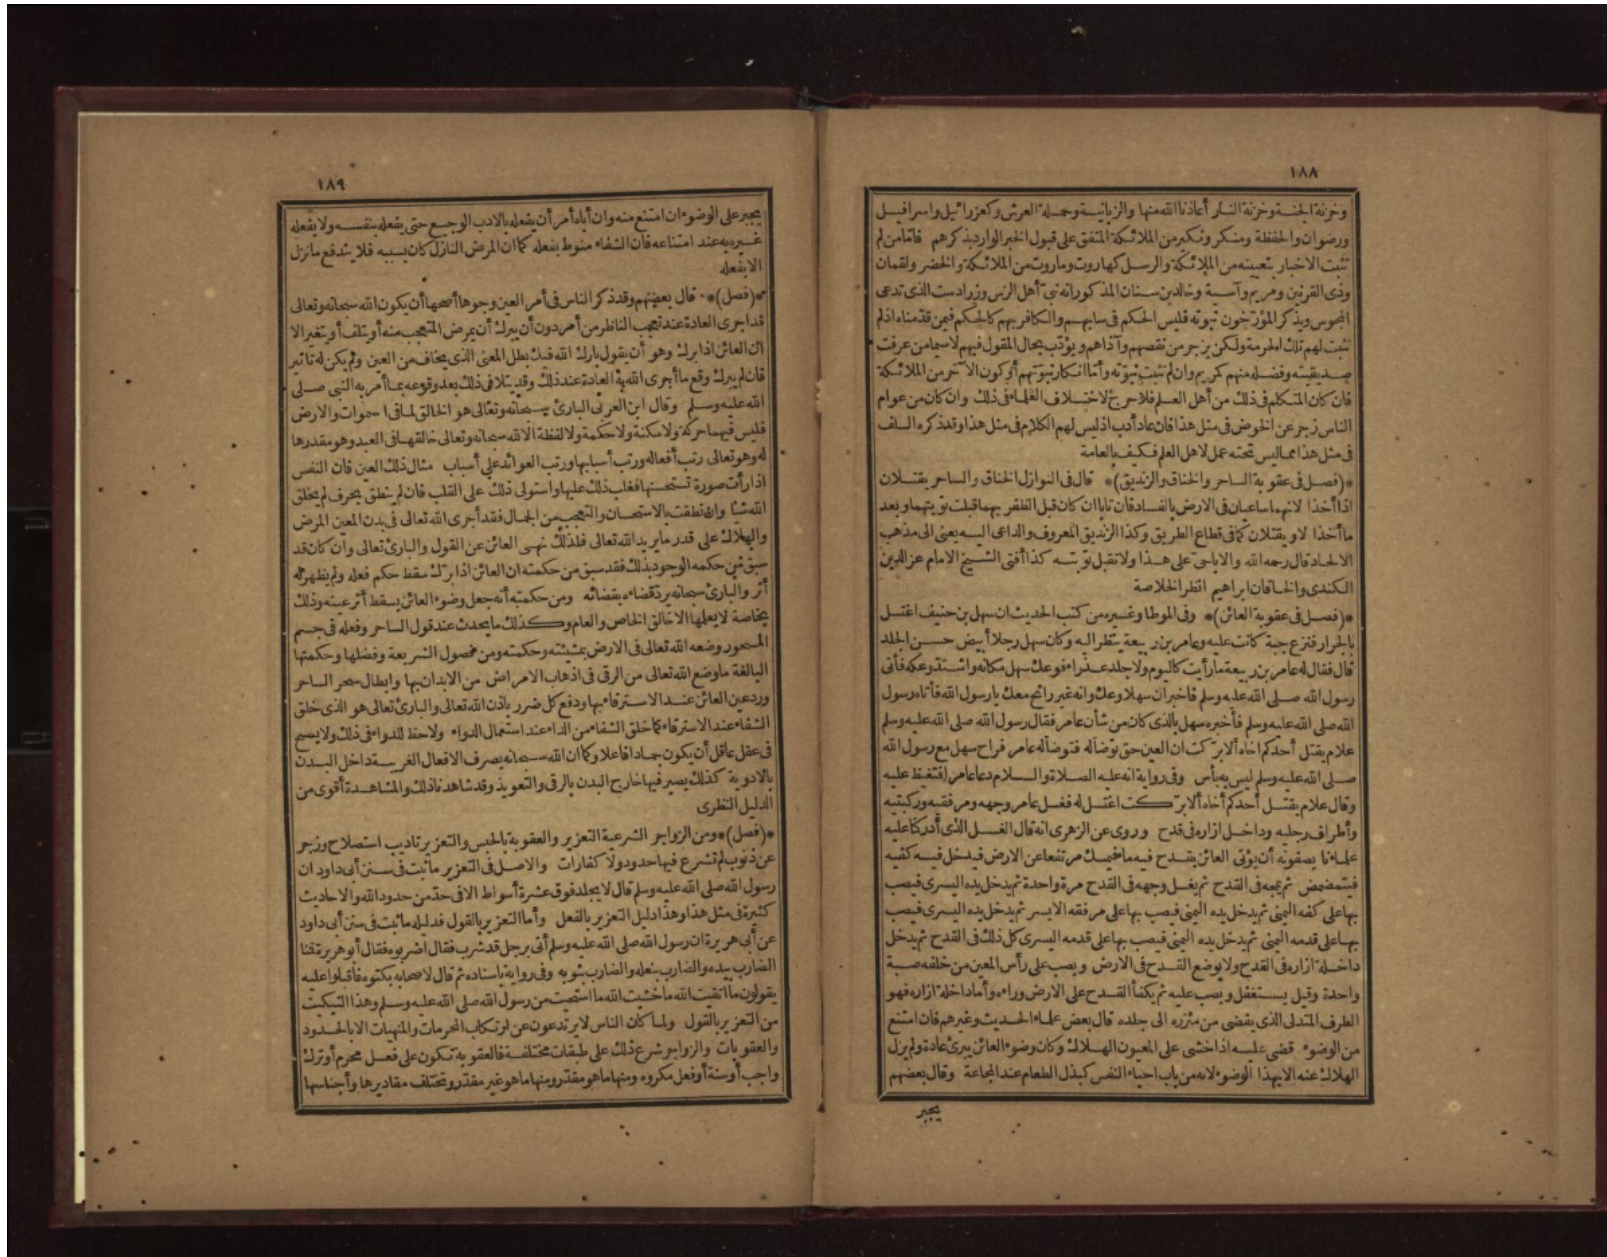 ١٨٨
وخزنة الجنة وخزنة النار أعاذنا الله منها والزبانية وحملة العرش وكعزرائيل واسرافيل
ورضوان والحفظة ومنكر ونكير من الملائكة المتفق على قبول الخبر الوارد بذكرهم فاما من لم
تثبت الاخبار بتعيينه من الملائكة والرسل كهاروت وماروت من الملائكة والخضر ولقمان
وذى القرنين ومريم وآسية وخالد بن سنان المذكور انه نبى أهل الرس وزرادست الذى تدعى
المجوس ويذكر المؤرّخون نبوته فليس الحكم فى سابهم والكافر بهم كالحكم فيمن قدّمناه اذ لم
تثبت لهم تلك الحرمة ولكن يزجر من نقصهم وآذاهم ويؤدّب بحال المقول فيهم لاسيما من عرفت
صديقيته وفضله منهم كريم وان لم تثبت نبوّته وأمّا انكار نبوّتهم أو كون الآخر من الملائكة
فان كان المتكلم فى ذلك من أهل العلم فلا حرج لاختلاف العلماء فى ذلك وان كان من عوام
الناس زجر عن الخوض فى مثل هذا فان عاد أدب اذ ليس لهم الكلام فى مثل هذا وقد ذكره السلف
فى مثل هذا مما ليس تحته عمل لاهل العلم فكيف بالعامة
*(فصل فى عقوبة الساحر والخناق والزنديق)* قال فى النوازل الخناق والساحر يقتلان
اذا أخذا لانهما ساعيان فى الارض بالفساد فان تابا ان كان قبل الظفر بهما قبلت توبتهما وبعد
ما أخذا لا ويقتلان كما فى قطاع الطريق وكذا الزنديق المعروف والداعى اليه يعنى الى مذهب
الالحاد قال رحمه الله والاباحى على هذا ولا تقبل توبته كذا أفتى الشيخ الامام عز الدين
الكندى والخاقان ابراهيم انظر الخلاصة
*(فصل فى عقوبة العائن)* وفى الموطا وغيره من كتب الحديث ان سهل بن حنيف اغتسل
بالجرار فنزع جبة كانت عليه وعامر بن ربيعة ينظر اليه وكان سهل رجلا أبيض حسن الجلد
قال فقال له عامر بن ربيعة ما رأيت كاليوم ولا جلد عذراء فوعك سهل مكانه واشتد وعكه فأتى
رسول الله صلى الله عليه وسلم فاخبر ان سهلا وعك وانه غير رائح معك يا رسول الله فأتاه رسول
الله صلى الله عليه وسلم فأخبره سهل بالذى كان من شأن عامر فقال رسول الله صلى الله عليه وسلم
علام يقتل أحدكم اخاه ألا بركت ان العين حق توضأ له فتوضأ له عامر فراح سهل مع رسول الله
صلى الله عليه وسلم ليس به بأس وفى رواية انه عليه الصلاة والسلام دعا عامرا فتغيظ عليه
وقال علام يقتل أحدكم أخاه ألا بركت اغتسل له فغسل عامر وجهه ومرفقيه وركبتيه
وأطراف رجليه وداخل ازاره فى قدح وروى عن الزهرى انه قال الغسل الذى أدركنا عليه
علماءنا يصفونه أن يؤتى العائن بقدح فيه ماء فيمسك مرتفعا عن الارض فيدخل فيه كفيه
فيتمضمض ثم يمجه فى القدح ثم يغسل وجهه فى القدح مرة واحدة ثم يدخل يده اليسرى فيصب
بها على كفه اليمنى ثم يدخل يده اليمنى فيصب بها على مرفقه الايسر ثم يدخل يده اليسرى فيصب
بها على قدمه اليمنى ثم يدخل يده اليمنى فيصب بها على قدمه اليسرى كل ذلك فى القدح ثم يدخل
داخلة ازاره فى القدح ولا يوضع القدح فى الارض ويصب على رأس المعين من خلفه صبة
واحدة وقيل يستغفل ويصب عليه ثم يكفأ القدح على الارض وراءه وأما داخلة ازاره فهو
الطرف المتدلى الذى يفضى من مئزره الى جلده قال بعض علماء الحديث وغيرهم فان امتنع
من الوضوء قضى عليه اذا خشى على المعيون الهلاك وكان وضوء العائن يبرئ عادة ولم يزل
الهلاك عنه الا بهذا الوضوء لانه من باب احياء النفس كبذل الطعام عند المجاعة وقال بعضهم
يجبر
١٨٩
يجبر على الوضوء ان امتنع منه وان أباه أمر أن يفعله بالادب الوجيع حتى يفعله بنفسه ولا يفعله
غيره به عند امتناعه فان الشفاء منوط بفعله كما ان المرض النازل كان بسببه فلا يندفع ما نزل
الا بفعله
*(فصل)* قال بعضهم وقد ذكر الناس فى أمر العين وجوها أصحها أن يكون الله سبحانه وتعالى
قد اجرى العادة عند تعجب الناظر من أمر دون أن يبرك أن يمرض المتعجب منه أو يتلف أو يتغير الا
ان العائن اذا برك وهو أن يقول بارك الله فيك بطل المعنى الذى يخاف من العين ولم يكن له تاثير
فان لم يبرك وقع ما أجرى الله به العادة عند ذلك وقد يتلافى ذلك بعد وقوعه بما أمر به النبى صلى
الله عليه وسلم وقال ابن العربى البارئ سبحانه وتعالى هو الخالق لما فى السموات والارض
فليس فيهما حركة ولا سكنة ولا حكمة ولا لفظة الا لله سبحانه وتعالى خالقها فى العبد وهو مقدرها
له وهو تعالى رتب أفعاله ورتب أسبابها ورتب العوائد على أسباب مثال ذلك العين فان النفس
اذا رأت صورة تستحسنها فغلب ذلك عليها واستولى ذلك على القلب فان لم ينطق بحرف لم يخلق
الله شيئا وان نطقت بالاستحسان والتعجب من الجمال فقد أجرى الله تعالى فى بدن المعين المرض
والهلاك على قدر ما يريد الله تعالى فلذلك نهى العائن عن القول والبارئ تعالى وان كان قد
سبق من حكمه الوجود بذلك فقد سبق من حكمته ان العائن اذا برك سقط حكم فعله ولم يظهر له
أثر والبارئ سبحانه يرد قضاءه بقضائه ومن حكمته أنه جعل وضوء العائن يسقط أثر عينه وذلك
بخاصة لا يعلمها الا خالق الخاص والعام وكذلك ما يحدث عند قول الساحر وفعله فى جسم
المسحور وضعه الله تعالى فى الارض بمشيئته وحكمته ومن فصول الشريعة وفضلها وحكمتها
البالغة ما وضع الله تعالى من الرقى فى اذهاب الامراض من الابدان بها وابطال سحر الساحر
ورد عين العائن عند الاسترقاء بها ودفع كل ضرر باذن الله تعالى والبارئ تعالى هو الذى خلق
الشفاء عند الاسترقاء كما خلق الشفاء من الداء عند استعمال الدواء ولا حظ للدواء فى ذلك ولا يصح
فى عقل عاقل أن يكون جمادا فاعلا وكما ان الله سبحانه يصرف الافعال الغريبة داخل البدن
بالادوية كذلك يصير فيها خارج البدن بالرقى والتعويذ وقد شاهدنا ذلك والمشاهدة أقوى من
الدليل النظرى
*(فصل)* ومن الزواجر الشرعية التعزير والعقوبة بالحبس والتعزير تاديب استصلاح وزجر
عن ذنوب لم تشرع فيها حدود ولا كفارات والاصل فى التعزير ما ثبت فى سنن أبى داود ان
رسول الله صلى الله عليه وسلم قال لا يجلد فوق عشرة أسواط الا فى حد من حدود الله والاحاديث
كثيرة فى مثل هذا وهذا دليل التعزير بالفعل وأما التعزير بالقول فدليله ما ثبت فى سنن أبى داود
عن أبى هريرة ان رسول الله صلى الله عليه وسلم أتى برجل قد شرب فقال اضربوه فقال أبو هريرة فمنا
الضارب بيده والضارب بنعله والضارب بثوبه وفى رواية باسناده ثم قال لاصحابه بكتوه فأقبلوا عليه
يقولون ما اتقيت الله ما خشيت الله ما استحيت من رسول الله صلى الله عليه وسلم وهذا التبكيت
من التعزير بالقول ولما كان الناس لا يرتدعون عن ارتكاب المحرمات والمنهيات الا بالحدود
والعقوبات والزواجر شرع ذلك على طبقات مختلفة فالعقوبة تكون على فعل محرم أو ترك
واجب أو سنة أو فعل مكروه ومنها ما هو مقدر ومنها ما هو غير مقدر وتختلف مقاديرها وأجناسها